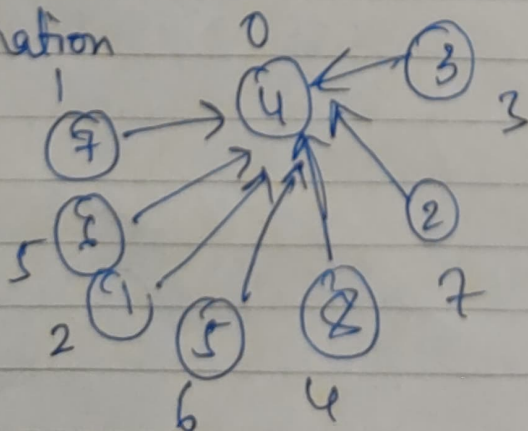 nation
0
4
3
3
1
7
2
7
5
1
2
5
6
8
4